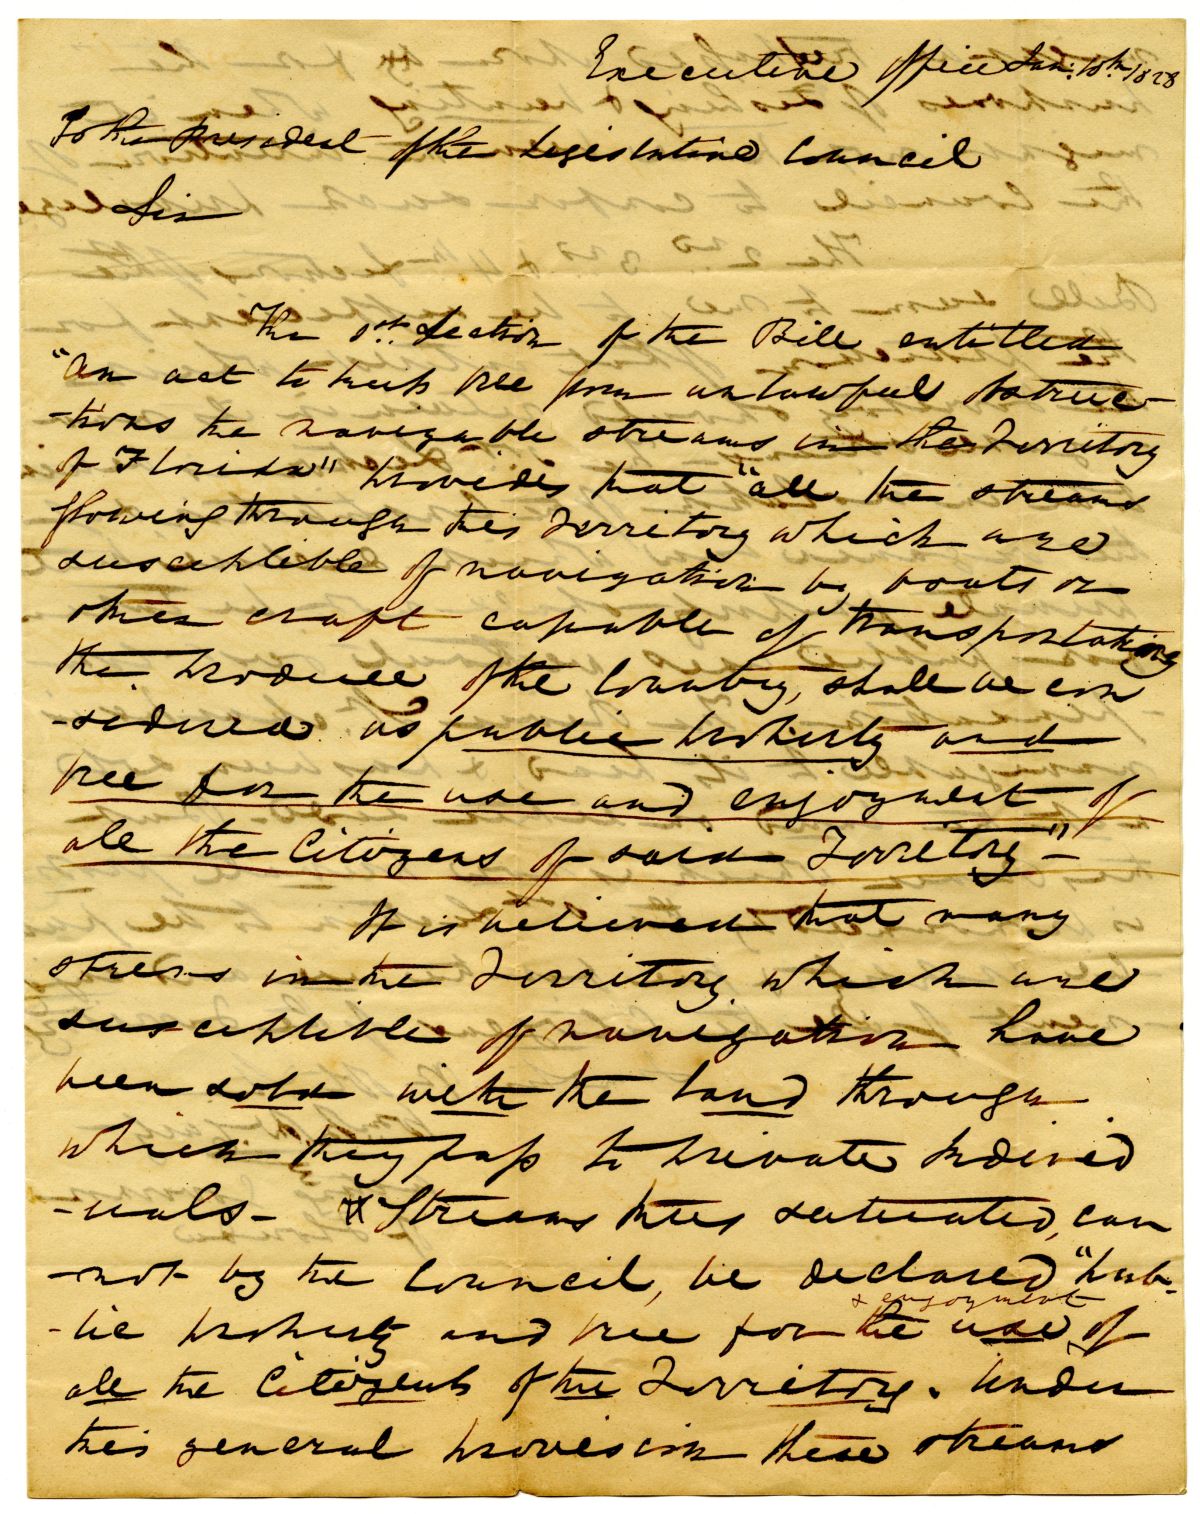 Executive office Jan: 10th 1828
To the President of the Legislative Council
Sir
The 1st. Section of the Bill entitled
"An act to keep free from unlawful obstruc-
-tions the navigable streams in the Territory
of Florida" provides that "all the streams
flowing through this Territory which are
susceptible of navigation by boats or
other craft capable of transporting
the produce of the Country, shall be con
-sidered as public property and
free for the use and enjoyment of
all the Citizens of said Territory"-
It is believed that many
strems in the Territory which are
susceptible of navigation have
been sold with the land through
which they pass to private Individ
-uals- Streams thus situated, can
-not by the Council, be declared "pub-
-lic property and free for the use & enjoyment of
all the Citizens of the Territory. Under
this general provision these streams